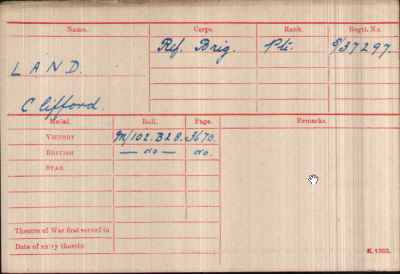 Name. Corps. Rank. Regtl. No.
Rif. Brig. Pte. S/37297.
LAND.
Clifford.
Medal. Roll. Page. Remarks
VICTORY M/102.B28. 3670.
BRITISH — do — do.
STAR
Theatre of War first served in
Date of entry therein
K. 1380.